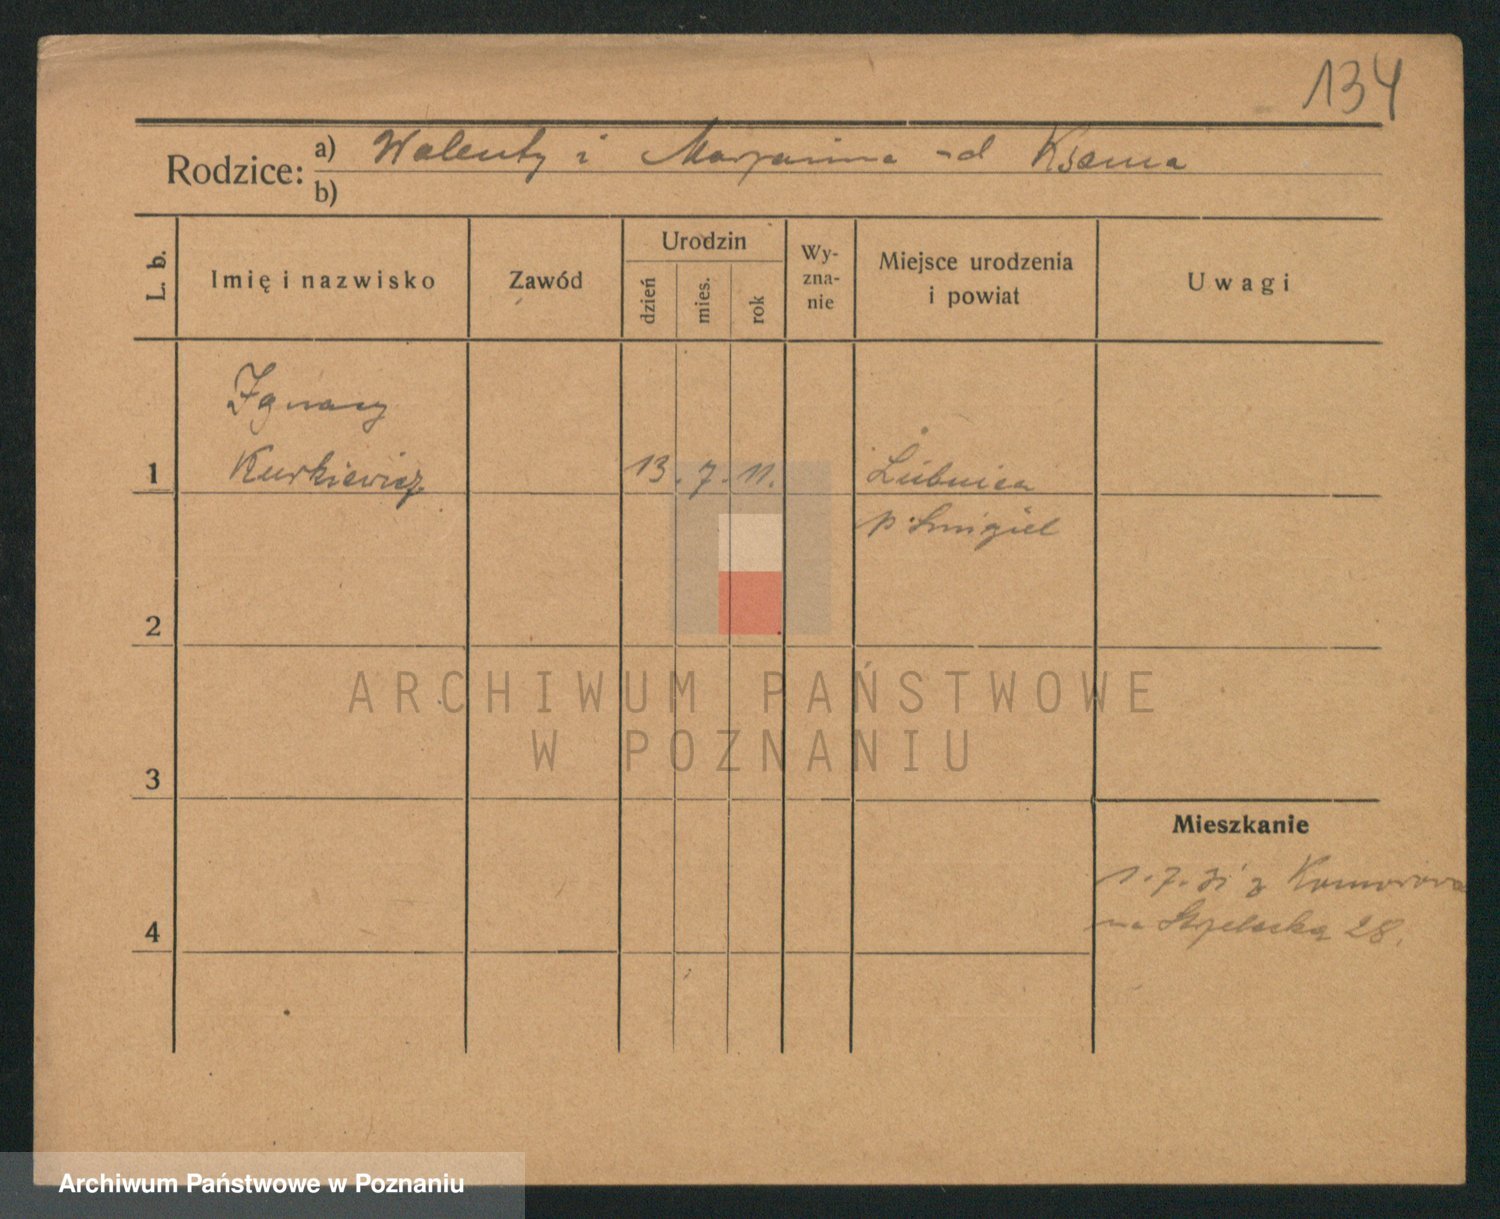 134
Rodzice: a) Walenty i Maryanna
b)
L. b.
Imię i nazwisko
Zawód
Urodzin
dzień
mies.
rok
Wy-
zna-
nie
Miejsce urodzenia
i powiat
Uwagi
Ignacy
1 Kurkiewicz 13. 7. 11. Lubnica
p. Smigiel
2
ARCHIWUM PAŃSTWOWE
W POZNANIU
3
Mieszkanie
1. 7. 31 z
na Strzelecką 28.
4
Archiwum Państwowe w Poznaniu